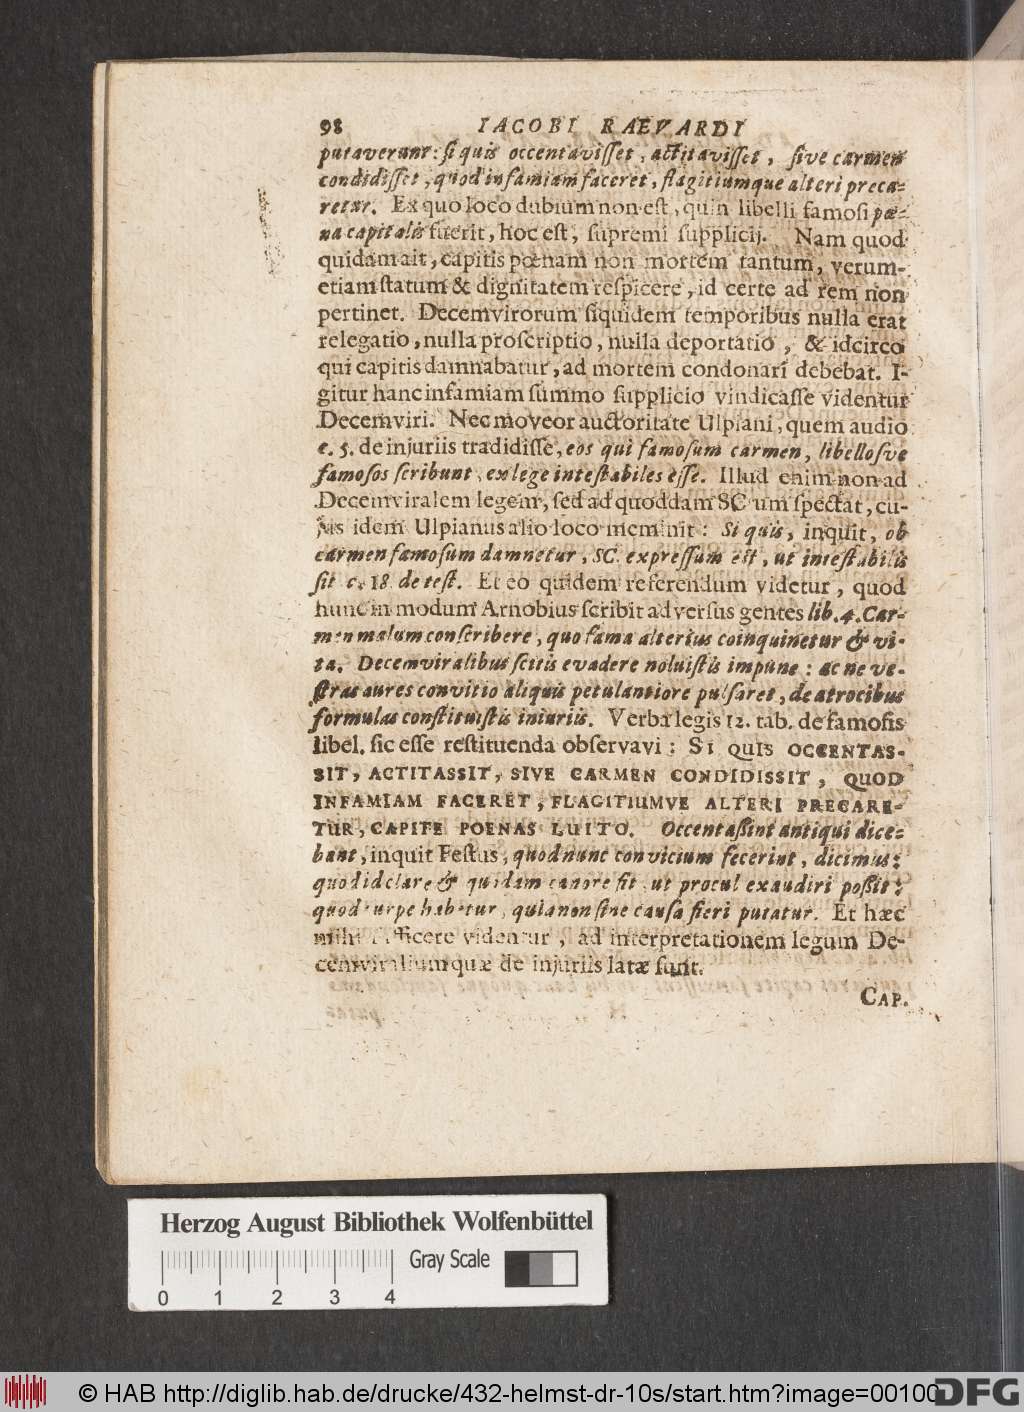 98 IACOBI RAEVARDI
putaverunt: si quis occentavisset, actitavisset, sive carmen
condidisset, quod infamiam faceret, flagitiumque alteri preca-
retur. Ex quo loco dubium non est, quin libelli famosi pœ-
na capitalis fuerit, hoc est, supremi supplicij. Nam quod
quidam ait, capitis pœnam non mortem tantum, verum-
etiam statum & dignitatem respicere, id certe ad rem non
pertinet. Decemvirorum siquidem temporibus nulla erat
relegatio, nulla proscriptio, nulla deportatio, & idcirco
qui capitis damnabatur, ad mortem condonari debebat. I-
gitur hanc infamiam summo supplicio vindicasse videntur
Decemviri. Nec moveor auctoritate Ulpiani, quem audio
e. 5. de injuriis tradidisse, eos qui famosum carmen, libellosve
famosos scribunt, ex lege intestabiles esse. Illud enim non ad
Decemviralem legem, sed ad quoddam SC um spectat, cu-
jus idem Ulpianus alio loco meminit: Si quis, inquit, ob
carmen famosum damnetur, SC. expressum est, ut intestabilis
sit c. 18. de test. Et eo quidem referendum videtur, quod
hunc in modum Arnobius scribit adversus gentes lib. 4. Car-
men malum conscribere, quo fama alterius coinquinetur & vi-
ta, Decemviralibus scitis evadere noluistis impune: ac ne ve-
stras aures convitio aliquis petulantiore pulsaret, de atrocibus
formulas constituistis iniuriis. Verba legis 12. tab. de famosis
libel. sic esse restituenda observavi: SI QUIS OCCENTAS-
SIT, ACTITASSIT, SIVE CARMEN CONDIDISSIT, QUOD
INFAMIAM FACERET, FLAGITIUMVE ALTERI PRECARE-
TUR, CAPITE POENAS LUITO. Occentassint antiqui dice-
bant, inquit Festus, quod nunc convicium fecerint, dicimus:
quod id clare & quodam canore fit, ut procul exaudiri possit:
quod turpe habetur, quia non sine causa fieri putatur. Et hæc
mihi sufficere videntur, ad interpretationem legum De-
cemviralium quæ de injuriis latæ sunt.
CAP.
Herzog August Bibliothek Wolfenbüttel
Gray Scale
0 1 2 3 4
© HAB http://diglib.hab.de/drucke/432-helmst-dr-10s/start.htm?image=00100
DFG